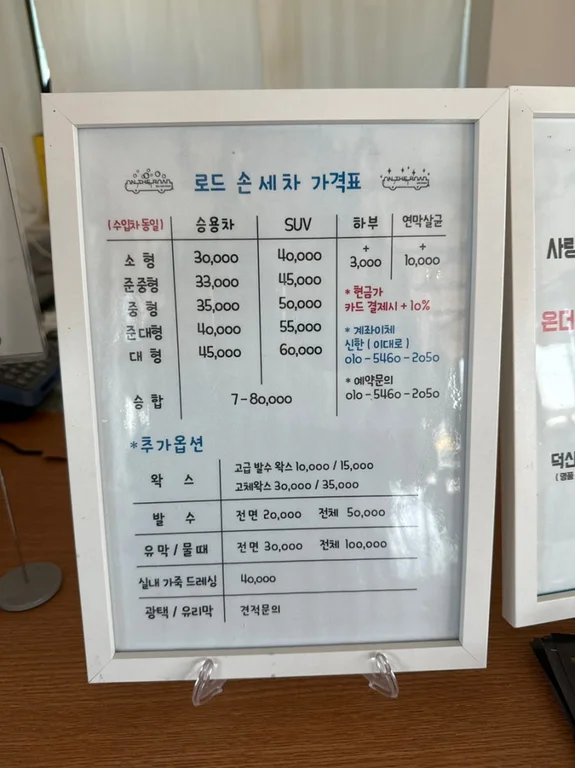 로드 손세차 가격표
(수입차 동일) 승용차 SUV 하부 연막살균
소 형 30,000 40,000 +3,000 +10,000
준중형 33,000 45,000
중 형 35,000 50,000
준대형 40,000 55,000
대 형 45,000 60,000
승 합 7-80,000
* 현금가
카드 결제시 + 10%
* 계좌이체
신한 ( 이대로 )
010 - 5460 - 2050
* 예약문의
010 - 5460 - 2050
* 추가옵션
왁 스 고급 발수 왁스 10,000 / 15,000
고체왁스 30,000 / 35,000
발 수 전면 20,000 전체 50,000
유막 / 물때 전면 30,000 전체 100,000
실내 가죽 드레싱 40,000
광택 / 유리막 견적문의
사랑
온더
덕신